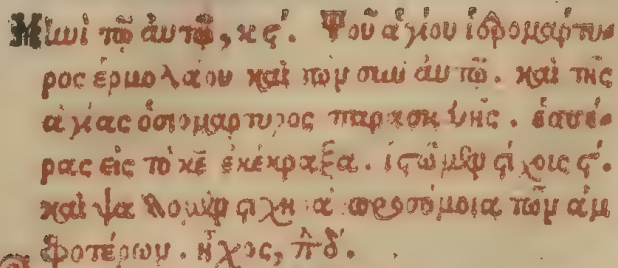 Μηνὶ τῷ ἀυτῷ, κς΄. Τοῦ ἁγίου ἱερομάρτυ-
ρος ἑρμολάου καὶ τῶν σὺν ἀυτῷ. καὶ τῆς
ἁγίας ὁσιομάρτυρος παρασκευῆς. ἑσπέ-
ρας εἰς τὸ κε̄ ἐκέκραξα. ἱςῶμεν ςίχοις ϛ΄.
καὶ ψάλλομεν ςιχηρὰ προσόμοια τῶν ἀμ
φοτέρων. ἦχος, πλ δ΄.